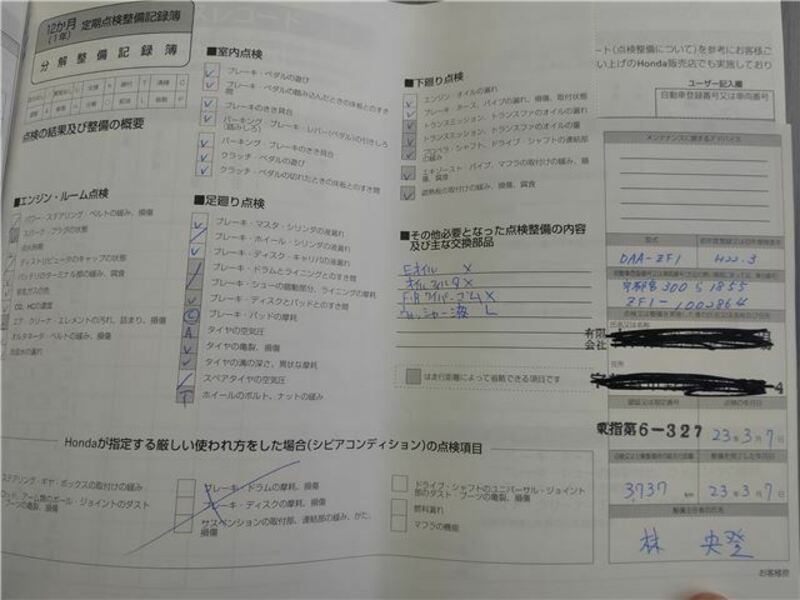 12か月 定期点検整備記録簿
(1年)
分解整備記録簿
点検の結果及び整備の概要
■エンジン・ルーム点検
パワー・ステアリング・ベルトの緩み、損傷
スパーク・プラグの状態
ディストリビュータのキャップの状態
バッテリのターミナル部の緩み、腐食
CO、HCの濃度
エア・クリーナ・エレメントの汚れ、詰まり、損傷
冷却水の漏れ
■室内点検
ブレーキ・ペダルの遊び
ブレーキ・ペダルの踏み込んだときの床板とのすき間
ブレーキのきき具合
パーキング・ブレーキ・レバー(ペダル)の引きしろ(踏みしろ)
パーキング・ブレーキのきき具合
クラッチ・ペダルの遊び
クラッチ・ペダルの切れたときの床板とのすき間
■足廻り点検
ブレーキ・マスタ・シリンダの液漏れ
ブレーキ・ホイール・シリンダの液漏れ
ブレーキ・ディスク・キャリパの液漏れ
ブレーキ・ドラムとライニングとのすき間
ブレーキ・シューの摺動部分、ライニングの摩耗
ブレーキ・ディスクとパッドとのすき間
ブレーキ・パッドの摩耗
タイヤの空気圧
タイヤの亀裂、損傷
タイヤの溝の深さ、異状な摩耗
スペアタイヤの空気圧
ホイールのボルト、ナットの緩み
■下廻り点検
エンジン・オイルの漏れ
ブレーキ・ホース、パイプの漏れ、損傷、取付状態
トランスミッション、トランスファのオイルの漏れ
トランスミッション、トランスファのオイルの量
プロペラ・シャフト、ドライブ・シャフトの連結部の緩み
エキゾースト・パイプ、マフラの取付けの緩み、損傷、腐食
遮熱板の取付けの緩み、損傷、腐食
■その他必要となった点検整備の内容
及び主な交換部品
Eオイル X
オイルフィルタ X
F・Rワイパーゴム X
ウォッシャー液 L
は走行距離によって省略できる項目です
ート(点検整備について)を参考にお客様ご
い上げのHonda販売店でも実施しており
ユーザー記入欄
自動車登録番号又は車両番号
メンテナンスに関するアドバイス
型式
DAA-ZF1
H22.3
宇都宮300 S 1855
ZF1-1002864
有限
会社
住所
4
東指第6-327
23年3月7日
3,737 km
23年3月7日
林 央登
Hondaが指定する厳しい使われ方をした場合(シビアコンディション)の点検項目
ステアリング・ギヤ・ボックスの取付けの緩み
ロッド、アーム類のボール・ジョイントのダスト・ブーツの亀裂、損傷
ブレーキ・ドラムの摩耗、損傷
ブレーキ・ディスクの摩耗、損傷
サスペンションの取付部、連結部の緩み、がた、損傷
ドライブ・シャフトのユニバーサル・ジョイント部のダスト・ブーツの亀裂、損傷
燃料漏れ
マフラの機能
お客様控